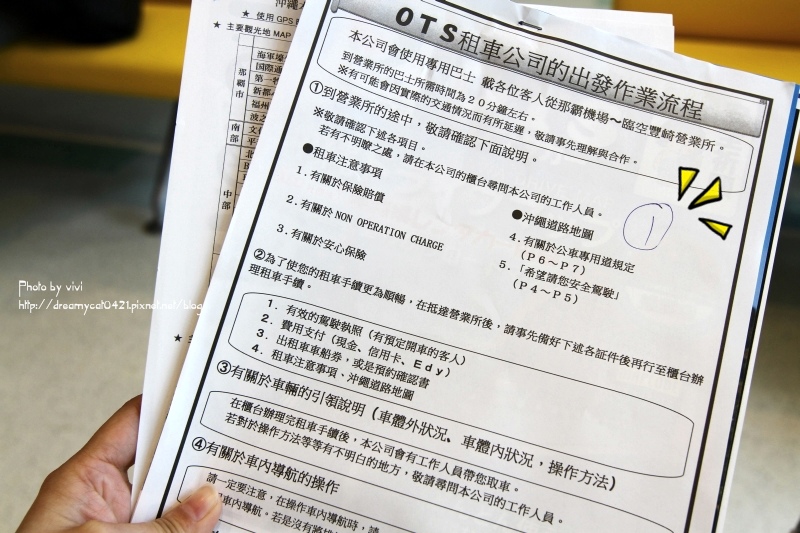 沖繩
★ 使用 GPS
★ 主要觀光地 MAP
那霸市
南部
中部
OTS租車公司的出發作業流程
本公司會使用專用巴士 載各位客人從那霸機場～臨空豐崎營業所。
到營業所的巴士所需時間為２０分鐘左右。
※有可能會因實際的交通情況而有所延遲，敬請事先理解與合作。
①到營業所的途中，敬請確認下面說明。
※敬請確認下述各項目。
若有不明瞭之處，請在本公司的櫃台尋問本公司的工作人員。
●租車注意事項
1.有關於保險賠償
2.有關於 NON OPERATION CHARGE
3.有關於安心保險
●沖繩道路地圖
4.有關於公車專用道規定
（Ｐ６～Ｐ７）
5.「希望請您安全駕駛」
（Ｐ４～Ｐ５）
1
②為了使您的租車手續更為順暢，在抵達營業所後，請事先備好下述各証件後再行至櫃台辦
理租車手續。
1. 有效的駕駛執照（有預定開車的客人）
2. 費用支付（現金、信用卡、Ｅｄｙ）
3. 出租車車船券，或是預約確認書
4. 租車注意事項、沖繩道路地圖
③有關於車輛的引領說明（車體外狀況、車體內狀況，操作方法）
在櫃台辦理完租車手續後，本公司會有工作人員帶您取車。
若對於操作方法等等有不明白的地方，敬請尋問本公司的工作人員。
④有關於車內導航的操作
請一定要注意，在操作車內導航時，請
車內導航。若是沒有將
Photo by vivi
http://dreamycat0421.pixnet.net/blog